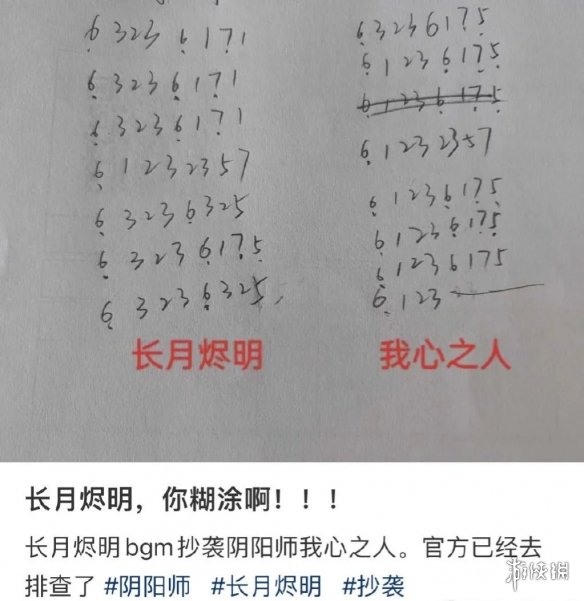 6 323 6 171
6 323 6 171
6 323 6 171
6 1232357
6 323 6325
6 323 6175
6 323 6325
长月烬明
63236175
61236175
61236175
61232357
61236175
61236175
61236175
6123
我心之人
长月烬明，你糊涂啊！！！
长月烬明bgm抄袭阴阳师我心之人。官方已经去
排查了 #阴阳师 #长月烬明 #抄袭
游侠网